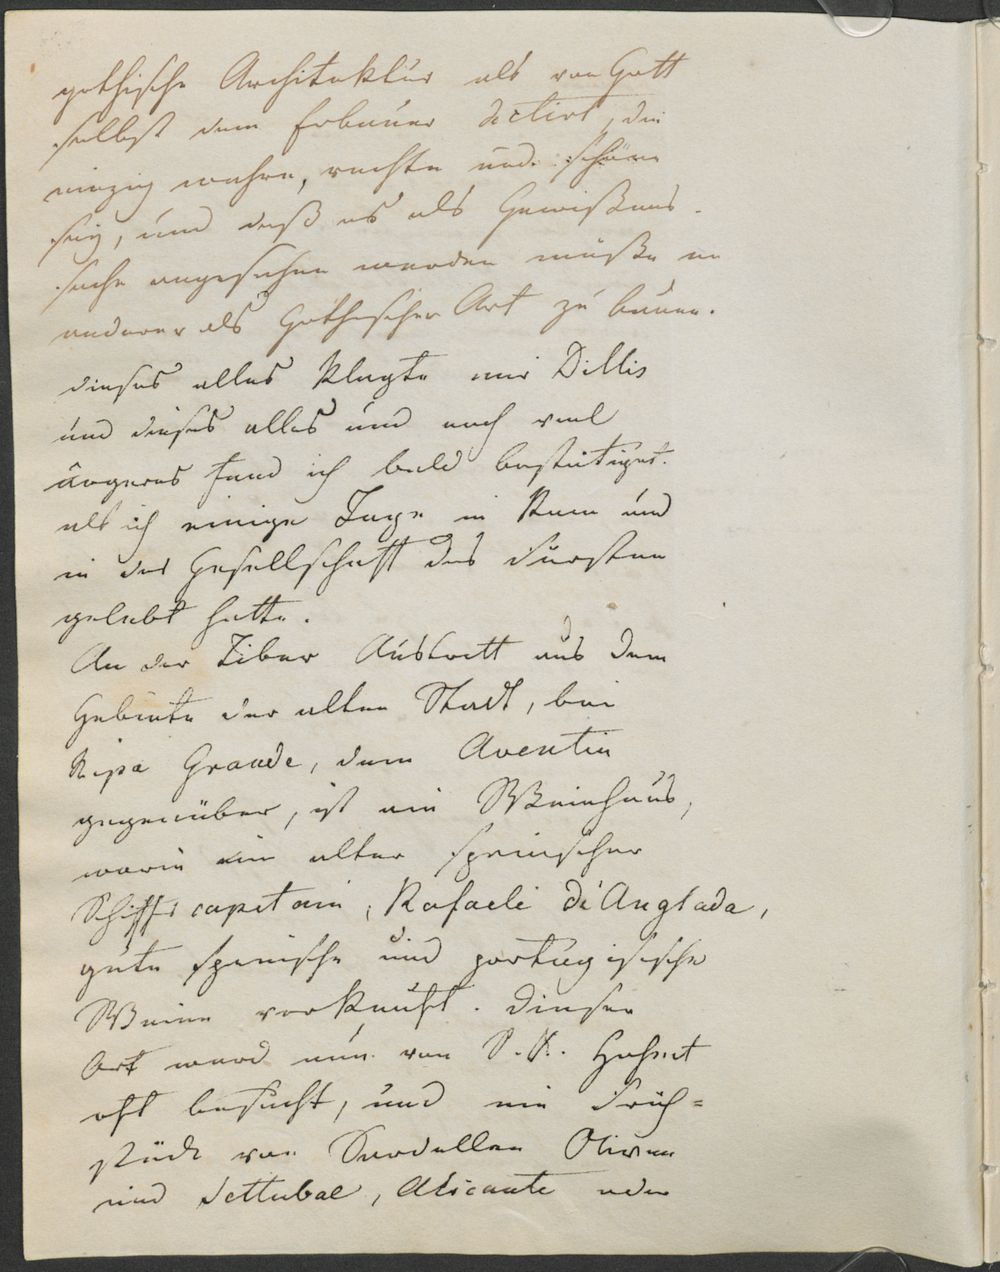 gothische Architektur als von Gott
selbst dem Erbauer dictirt, die
einzig wahre, rechte und schöne
sey, und daß es als Gewißens-
sache angesehen werden müße in
anderer als Gothischer Art zu bauen.
dieses alles klagte mir Dillis
und dieses alles und noch viel
ärgeres fand ich bald bestätiget.
als ich einige Tage in Rom und
in der Gesellschaft des Fürsten
gelebt hatte.
An der Tiber Austritt aus dem
Gebiete der alten Stadt, bei
Ripa Grande, dem Aventin
gegenüber, ist ein Weinhaus,
worin ein alter spanischer
Schiffscapitain, Rafaele di Anglada,
gute spanische und portugisische
Weine verkauft. Dieser
Ort ward nun von S. K. Hoheit
oft besucht, und ein Früh=
stück von Sardellen Oliven
und Settubal, Alicante oder